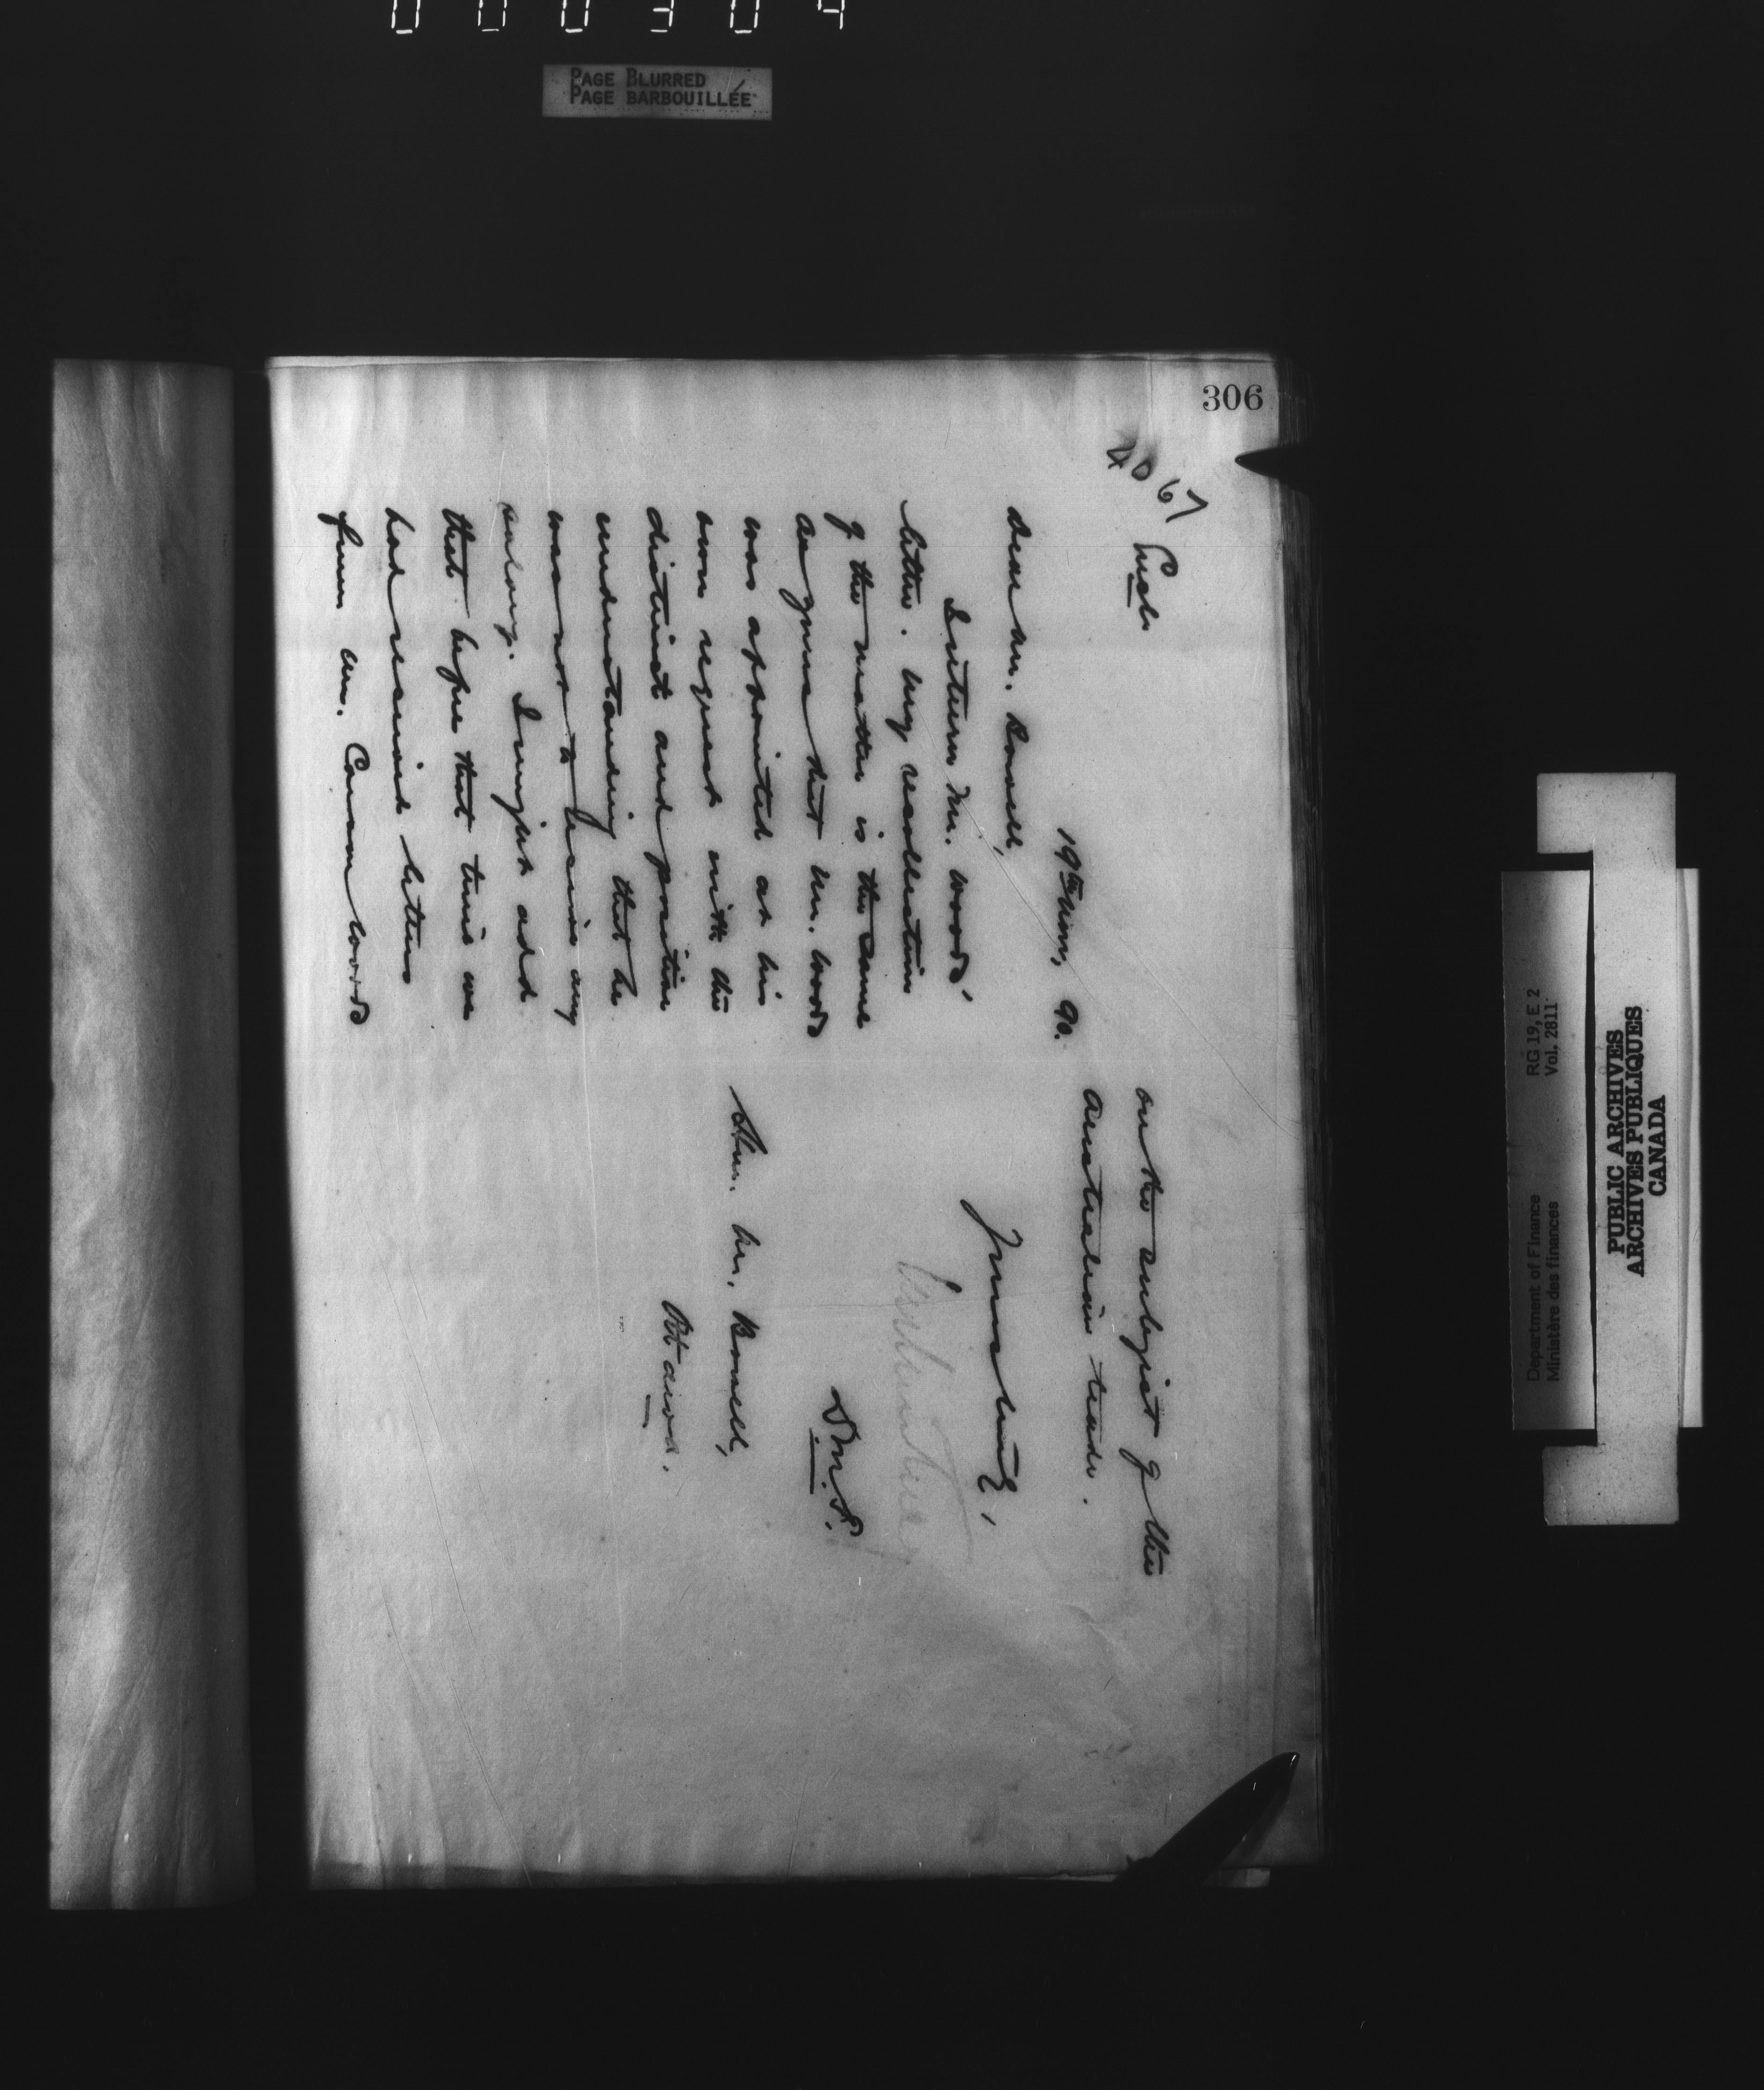 000304
PAGE BLURRED
PAGE BARBOUILLÉE
306
4067
Encls
19th Nov, 90.
Dear Mr. Bowell,
I return Mr. Woods'
letter. My recollection
of the matter is the same
as yours that Mr. Woods
was appointed at his
own request with the
distinct and positive
understanding that he
was not to receive any
salary. I might add
that before that time we
had received letters
from Mr. Cameron Woods
on the subject of the
Australian trade.
Yours truly,
Hon. Mr. Bowell,
Ottawa.
Department of Finance
Ministère des finances
RG 19, E 2
Vol. 2811
PUBLIC ARCHIVES
ARCHIVES PUBLIQUES
CANADA